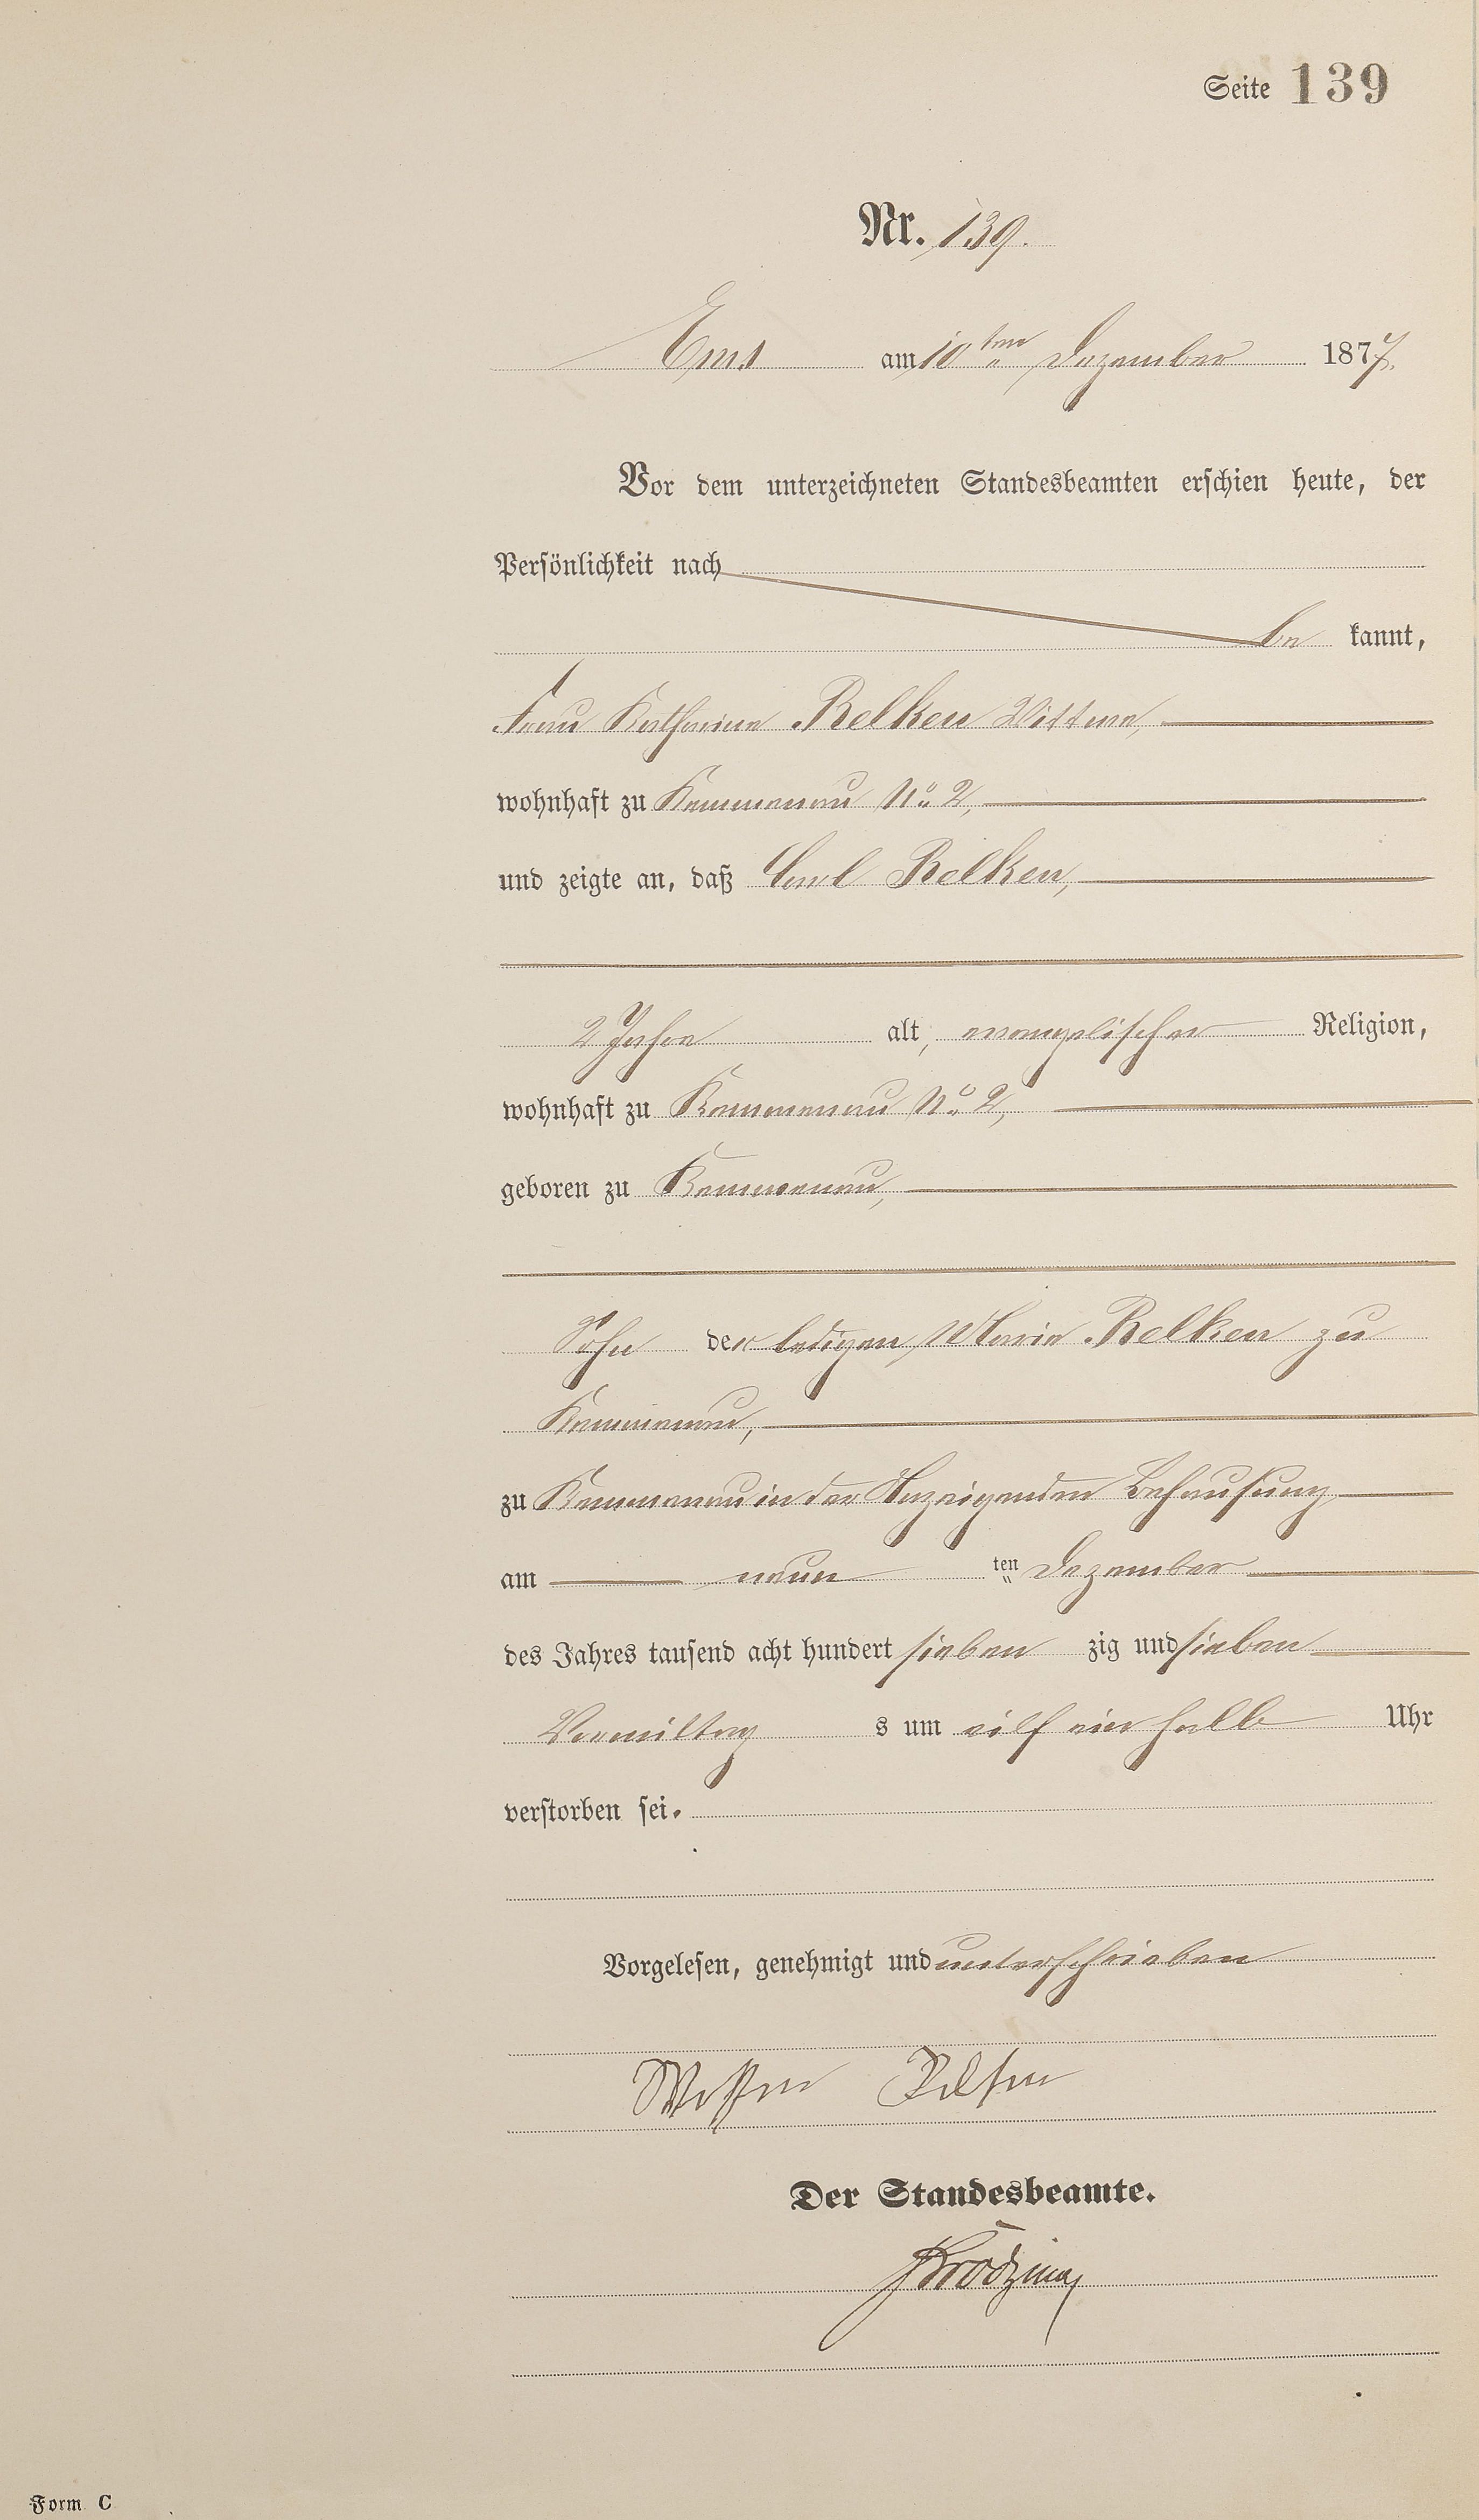 Seite 139
Nr. 139.
Ems am 10ten Dezember 1877.
Vor dem unterzeichneten Standesbeamten erschien heute, der
Persönlichkeit nach
be kannt,
Frau Katharine Relken Wittwe,
wohnhaft zu Kemmenau No 2,
und zeigte an, daß Carl Relken,
2 Jahre alt, evangelischer Religion,
wohnhaft zu Kemmenau No 2,
geboren zu Kemmenau,
Sohn der ledigen Marie Relken zu
Kemmenau,
zu Kemmenau in der Anzeigenden Behausung
am neun ten Dezember
des Jahres tausend acht hundert sieben zig und sieben
Vormittag s um eilf ein halb Uhr
verstorben sei.
Vorgelesen, genehmigt und unterschrieben
Der Standesbeamte.
Form C